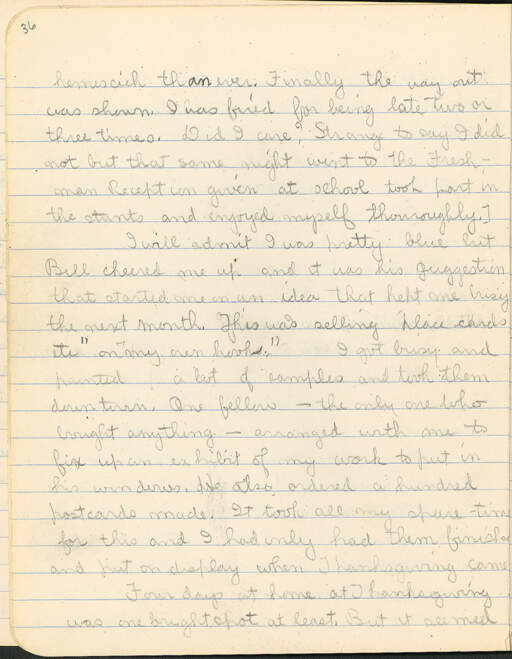 36
homesick than ever. Finally the way out
was shown. I was fired for being late two or
three times. Did I care? Strange to say I did
not but that same night went to the Fresh-
man Reception given at school took part in
the stunts and enjoyed myself thouroughly.]
I will admit I was pretty blue but
Bill cheered me up and it was his suggestion
that started me on an idea that kept me busy
the next month. This was selling "place cards
etc" on "my own hook." I got busy and
painted a lot of samples and took them
down town. One fellow — the only one who
bought anything — arranged with me to
fix up an exhibit of my work to put in
his windows. He also ordered a hundred
postcards made. It took all my spare-time
for this and I had only had them finished
and put on display when Thanksgiving came
Four days at home at Thanksgiving
was one bright spot at least. But it seemed